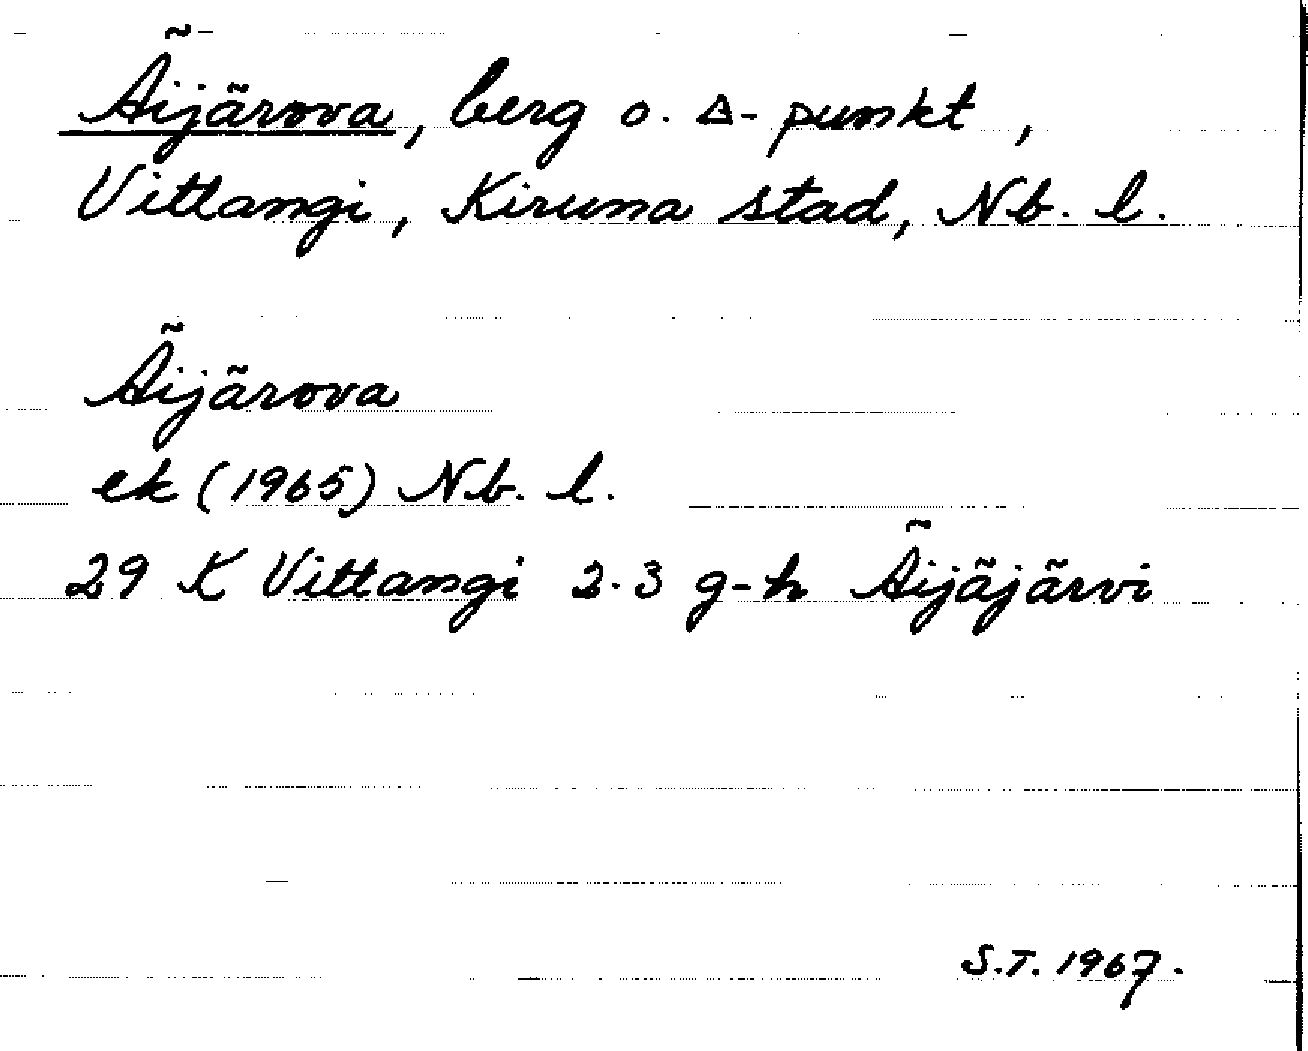 Äijärova, berg o. △-punkt,
Vittangi, Kiruna stad, Nb. l.
Äijärova
ek (1965) Nb. l.
29 K Vittangi 2-3 g-h Äijäjärvi
S.T. 1967.